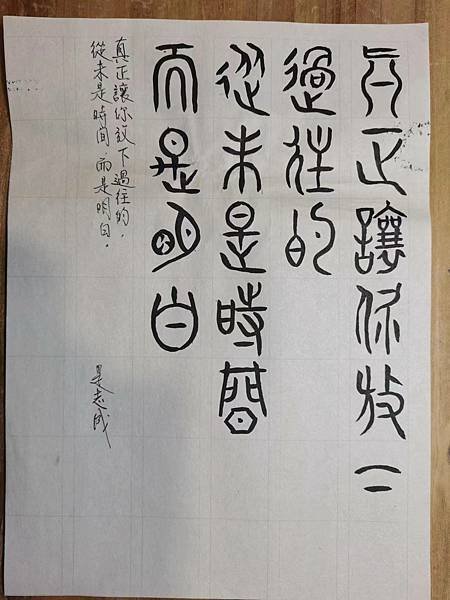 真正讓你放下
過往的
從未是時間
而是明白
真正讓你放下過往的，
從未是時間，而是明白。
志成